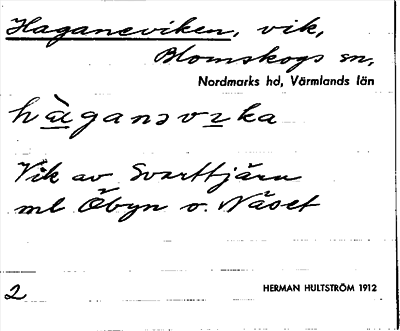 Haganeviken, vik,
Blomskogs sn,
Nordmarks hd, Värmlands län
Vik av Svarttjärn
ml Öbyn o. Näset
2
HERMAN HULTSTRÖM 1912